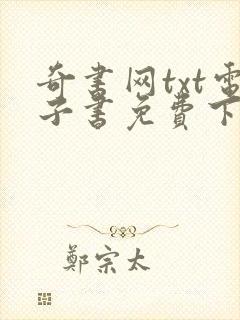 奇书网txt電
子書免費下
鄭宗太